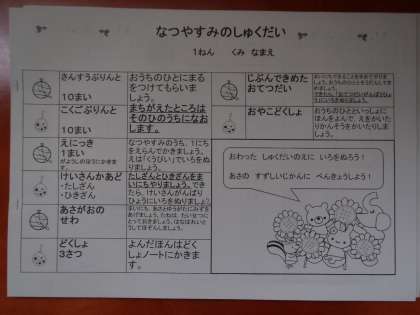 なつやすみのしゅくだい
1ねん　くみ　なまえ
さんすうぷりんと
10まい
おうちのひとにまる
をつけてもらいま
しょう。
こくごぷりんと
10まい
まちがえたところは
そのひのうちになお
します。
えにっき
1まい
なつやすみのうち、1にち
をえらんでかきましょう。
えは「くうぴい」でいろをぬ
りましょう。
けいさんかあど
・たしざん
・ひきざん
たしざんとひきざんをま
いにちやりましょう。でき
たら、けいさんがんばり
ひょうにいろをぬりましょう。
あさがおの
せわ
どくしょ
3さつ
よんだほんはどく
しょノートにかきま
す。
じぶんできめた
おてつだい
おやこどくしょ
おうちのひとといっしょに
ほんをよんで、えをかいた
りかんそうをかいたりしま
しょう。
おわった　しゅくだいのえに　いろをぬろう！
あさの　すずしいじかんに　べんきょうしよう！